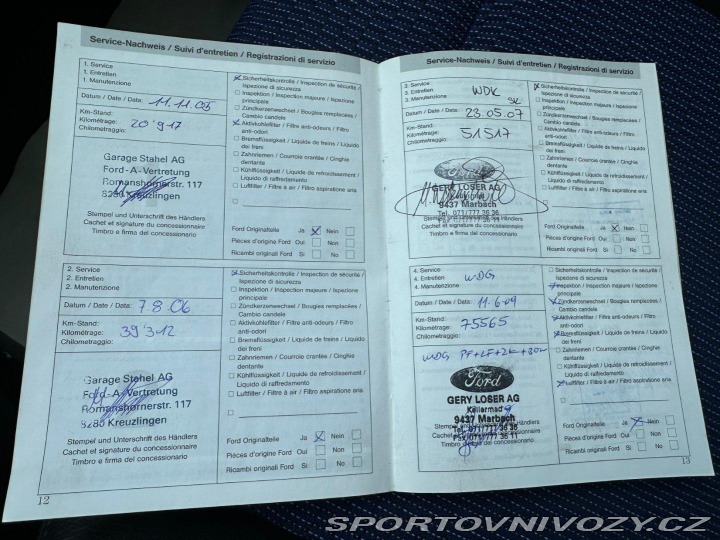 Service-Nachweis / Suivi d'entretien / Registrazioni di servizio
1. Service
1. Entretien
1. Manutenzione
Datum / Date / Data: 11.11.05
Km-Stand:
Kilométrage: 20'917
Chilometraggio:
Garage Stahel AG
Ford-A-Vertretung
Romanshornerstr. 117
8280 Kreuzlingen
Stempel und Unterschrift des Händlers
Cachet et signature du concessionnaire
Timbro e firma del concessionario
Sicherheitskontrolle / Inspection de sécurité /
Ispezione di sicurezza
Inspektion / Inspection majeure / Ispezione
principale
Zündkerzenwechsel / Bougies remplacées /
Cambio candele
Aktivkohlefilter / Filtre anti-odeurs / Filtro
anti-odori
Bremsflüssigkeit / Liquide de freins / Liquido
dei freni
Zahnriemen / Courroie crantée / Cinghia
dentante
Kühlflüssigkeit / Liquide de refroidissement /
Liquido di raffredamento
Luftfilter / Filtre à air / Filtro aspirazione aria
Ford Originalteile Ja X Nein
Pièces d'origine Ford Oui Non
Ricambi originali Ford Si No
2. Service
2. Entretien
2. Manutenzione
Datum / Date / Data: 7.8.06
Km-Stand:
Kilométrage: 39'312
Chilometraggio:
Garage Stahel AG
Ford-A-Vertretung
Romanshornerstr. 117
8280 Kreuzlingen
Stempel und Unterschrift des Händlers
Cachet et signature du concessionnaire
Timbro e firma del concessionario
Sicherheitskontrolle / Inspection de sécurité /
Ispezione di sicurezza
Inspektion / Inspection majeure / Ispezione
principale
Zündkerzenwechsel / Bougies remplacées /
Cambio candele
Aktivkohlefilter / Filtre anti-odeurs / Filtro
anti-odori
Bremsflüssigkeit / Liquide de freins / Liquido
dei freni
Zahnriemen / Courroie crantée / Cinghia
dentante
Kühlflüssigkeit / Liquide de refroidissement /
Liquido di raffredamento
Luftfilter / Filtre à air / Filtro aspirazione aria
Ford Originalteile Ja X Nein
Pièces d'origine Ford Oui Non
Ricambi originali Ford Si No
12
Service-Nachweis / Suivi d'entretien / Registrazioni di servizio
3. Service
3. Entretien WDK
3. Manutenzione
Datum / Date / Data: 23.05.07
Km-Stand:
Kilométrage: 51517
Chilometraggio:
Ford
GERY LOSER AG
9437 Marbach
Tel. 071/777 36 36
Fax 071/777 36 11
Stempel und Unterschrift des Händlers
Cachet et signature du concessionnaire
Timbro e firma del concessionario
Sicherheitskontrolle / Inspection de sécurité /
Ispezione di sicurezza
Inspektion / Inspection majeure / Ispezione
principale
Zündkerzenwechsel / Bougies remplacées /
Cambio candele
Aktivkohlefilter / Filtre anti-odeurs / Filtro
anti-odori
Bremsflüssigkeit / Liquide de freins / Liquido
dei freni
Zahnriemen / Courroie crantée / Cinghia
dentante
Kühlflüssigkeit / Liquide de refroidissement /
Liquido di raffredamento
Luftfilter / Filtre à air / Filtro aspirazione aria
Ford Originalteile Ja X Nein
Pièces d'origine Ford Oui Non
Ricambi originali Ford Si No
4. Service
4. Entretien WDG
4. Manutenzione
Datum / Date / Data: 11.6.09
Km-Stand:
Kilométrage: 75565
Chilometraggio:
WDG, PF+LF+ZK+
Ford
GERY LOSER AG
Kellermad 9
9437 Marbach
Tel. 071/777 36 36
Fax 071/777 36 11
Stempel und Unterschrift des Händlers
Cachet et signature du concessionnaire
Timbro e firma del concessionario
Sicherheitskontrolle / Inspection de sécurité /
Ispezione di sicurezza
Inspektion / Inspection majeure / Ispezione
principale
Zündkerzenwechsel / Bougies remplacées /
Cambio candele
Aktivkohlefilter / Filtre anti-odeurs / Filtro
anti-odori
Bremsflüssigkeit / Liquide de freins / Liquido
dei freni
Zahnriemen / Courroie crantée / Cinghia
dentante
Kühlflüssigkeit / Liquide de refroidissement /
Liquido di raffredamento
Luftfilter / Filtre à air / Filtro aspirazione aria
Ford Originalteile Ja X Nein
Pièces d'origine Ford Oui Non
Ricambi originali Ford Si No
13
SPORTOVNIVOZY.CZ